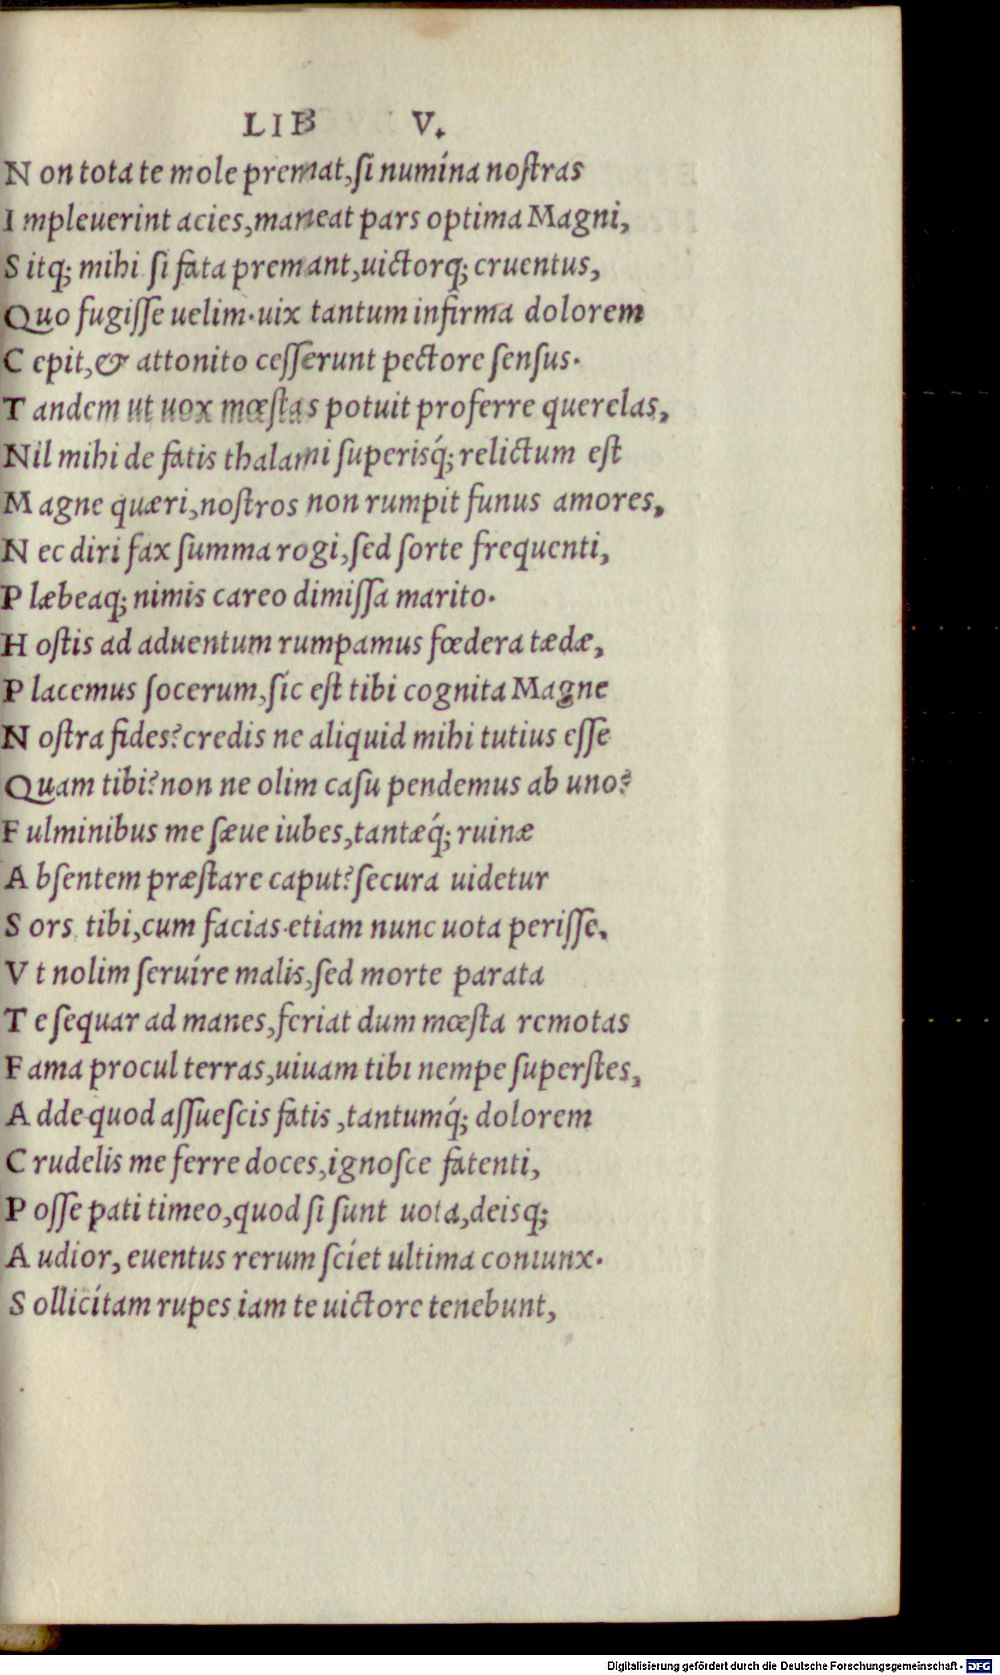 LIB V.
N on tota te mole premat,ſi numína noſtras
I mpleuerint acies,maneat pars optima Magni,
S itq; mihi ſi fata premant,uictorq; cruentus,
Quo fugiſſe uelim.uix tantum infirma dolorem
C epit,& attonito ceſſerunt pectore ſenſus.
T andem ut uox mœſtas potuit proferre querelas,
Nil mihi de fatis thalami ſuperisq́; relictum eſt
M agne quæri,noſtros non rumpit funus amores,
N ec diri fax ſumma rogi,ſed ſorte frequenti,
P læbeaq; nimis careo dimiſſa marito.
H oſtis ad aduentum rumpamus fœdera tædæ,
P lacemus ſocerum,ſíc eſt tibi cognita Magne
N oſtra fides?credis ne aliquid mihi tutius eſſe
Quam tibi?non ne olim caſu pendemus ab uno?
F ulminibus me ſæue iubes,tantæq́; ruinæ
A bſentem præſtare caput?ſecura uidetur
S ors tibi,cum facias.etiam nunc uota periſſe.
V t nolim ſeruíre malis,ſed morte parata
T e ſequar ad manes,feriat dum mœſta remotas
F ama procul terras,uiuam tibi nempe ſuperſtes,
A dde quod aſſueſcis fatis ,tantumq́; dolorem
C rudelis me ferre doces,ignoſce fatenti,
P oſſe pati timeo,quod ſi ſunt uota,deisq;
A udior, euentus rerum ſcíet ultima coniunx.
S ollicítam rupes iam te uictore tenebunt,
Digitalisierung gefördert durch die Deutsche Forschungsgemeinschaft - DFG